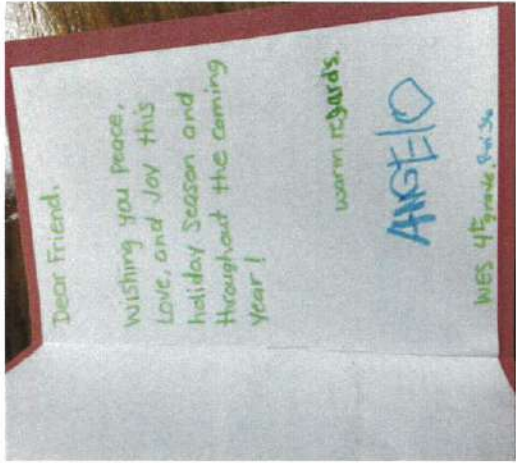 Dear Friend,
Wishing you Peace,
Love, and Joy this
holiday season and
throughout the coming
year!
warm regards,
ANGElO
WES 4th grade,